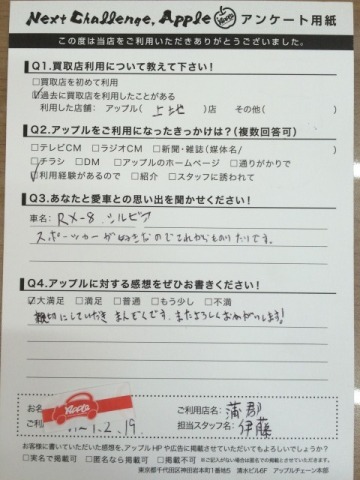 Next Challenge. Apple アンケート用紙
この度は当店をご利用いただきありがとうございました。
Q1.買取店利用について教えて下さい!
□買取店を初めて利用
☑過去に買取店を利用したことがある
利用した店舗: アップル( 上地 )店 その他( )
Q2.アップルをご利用になったきっかけは?(複数回答可)
□テレビCM □ラジオCM □新聞・雑誌(媒体名/ )
□チラシ □DM □アップルのホームページ □通りがかりで
☑利用経験があるので □紹介 □スタッフに誘われて
Q3.あなたと愛車との思い出を聞かせください!
車名: RX-8 シルビア
スポーツカーが好きなのでこれからものりたいです。
Q4.アップルに対する感想をぜひお書きください!
☑大満足 □満足 □普通 □もう少し □不満
親切にしていただき まんぞくです。またよろしくおねがいします!
お名 Apple ご利用店名: 蒲郡
ご利 1.2.19. 担当スタッフ名: 伊藤
お客様に書いていただいた感想を、アップルHPや広告に掲載させていただいてもよろしいでしょうか?
□実名で掲載可 □匿名なら掲載可 □掲載不可 ※ご記入がない場合は匿名での掲載とさせていただきます。
東京都千代田区神田岩本町1番地5 清水ビル6F アップルチェーン本部